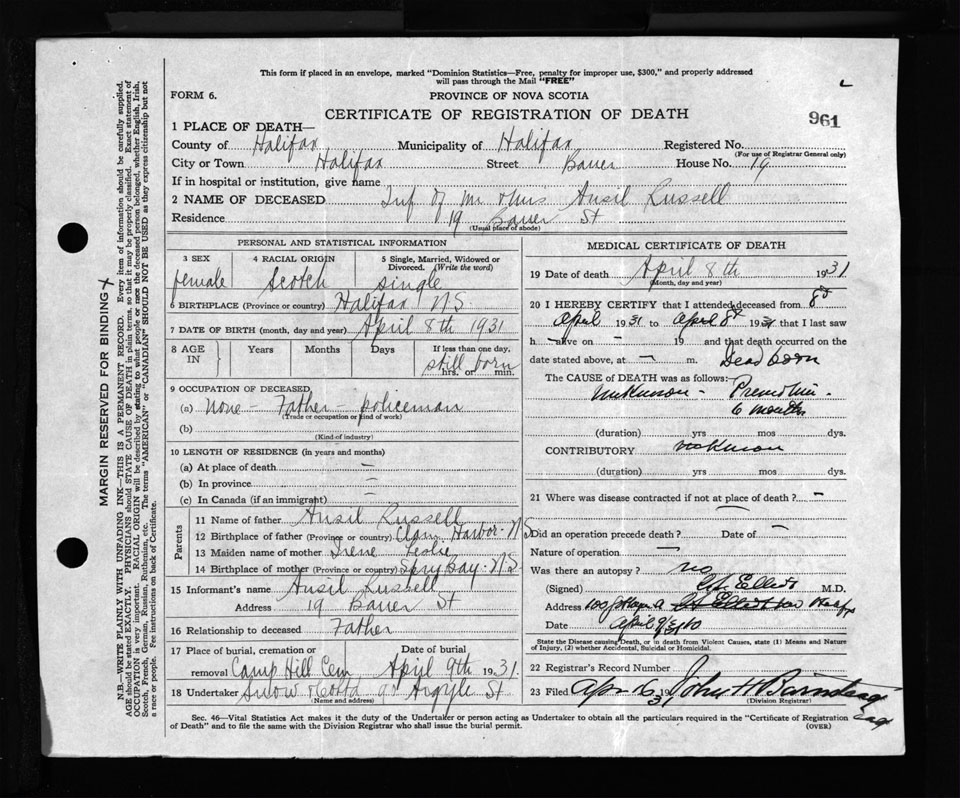 This form if placed in an envelope, marked "Dominion Statistics—Free, penalty for improper use, $300," and properly addressed
will pass through the Mail "FREE"
FORM 6.
PROVINCE OF NOVA SCOTIA
CERTIFICATE OF REGISTRATION OF DEATH
961
1 PLACE OF DEATH—
County of Halifax Municipality of Halifax Registered No.
(For use of Registrar General only)
City or Town Halifax Street Bauer House No. 19
If in hospital or institution, give name
2 NAME OF DECEASED Inf of Mr & Mrs Ansil Russell
Residence 19 Bauer St
(Usual place of abode)
PERSONAL AND STATISTICAL INFORMATION
3 SEX 4 RACIAL ORIGIN 5 Single, Married, Widowed or
Divorced. (Write the word)
female Scotch single
6 BIRTHPLACE (Province or country) Halifax NS
7 DATE OF BIRTH (month, day and year) April 8th 1931
8 AGE IN Years Months Days If less than one day.
still born
hrs. or min.
9 OCCUPATION OF DECEASED,
(a) None - Father - policeman
(Trade or occupation or kind of work)
(b)
(Kind of industry)
10 LENGTH OF RESIDENCE (in years and months)
(a) At place of death —
(b) In province —
(c) In Canada (if an immigrant) —
Parents
11 Name of father Ansil Russell
12 Birthplace of father (Province or country) Clam Harbor - NS
13 Maiden name of mother Irene Leslie
14 Birthplace of mother (Province or country) Spry Bay - NS
15 Informant's name Ansil Russell
Address 19 Bauer St
16 Relationship to deceased Father
17 Place of burial, cremation or Date of burial
removal Camp Hill Cem April 9th 1931
18 Undertaker Snow & Co Ltd 90 Argyle St
(Name and address)
MEDICAL CERTIFICATE OF DEATH
19 Date of death April 8th 1931
(Month, day and year)
20 I HEREBY CERTIFY that I attended deceased from 8th
April 1931 to April 8th 1931 that I last saw
h — alive on — 19 and that death occurred on the
date stated above, at — m. Dead born
The CAUSE of DEATH was as follows:
unknown -
6 months
(duration) yrs mos dys.
CONTRIBUTORY unknown
(duration) yrs mos dys.
21 Where was disease contracted if not at place of death? —
Did an operation precede death? Date of
Nature of operation —
Was there an autopsy? no
(Signed) M.D.
Address
Date April
State the Disease causing Death, or in death from Violent Causes, state (1) Means and Nature
of Injury, (2) whether Accidental, Suicidal or Homicidal.
22 Registrar's Record Number
23 Filed Apr 16 1931 John H
(Division Registrar)
Sec. 46—Vital Statistics Act makes it the duty of the Undertaker or person acting as Undertaker to obtain all the particulars required in the "Certificate of Registration
of Death" and to file the same with the Division Registrar who shall issue the burial permit.
(OVER)
MARGIN RESERVED FOR BINDING
N.B.—WRITE PLAINLY WITH UNFADING INK—THIS IS A PERMANENT RECORD. Every item of information should be carefully supplied.
AGE should be stated EXACTLY. PHYSICIANS should STATE CAUSE OF DEATH in plain terms, so that it may be properly classified. Exact statement of
OCCUPATION is very important. RACIAL ORIGIN will be described by stating to what people or race the deceased person belonged, whether English, Irish,
Scotch, French, German, Russian, Ruthenian, etc. The terms "AMERICAN" or "CANADIAN" SHOULD NOT BE USED as they express citizenship but not
a race or people. See instructions on back of Certificate.